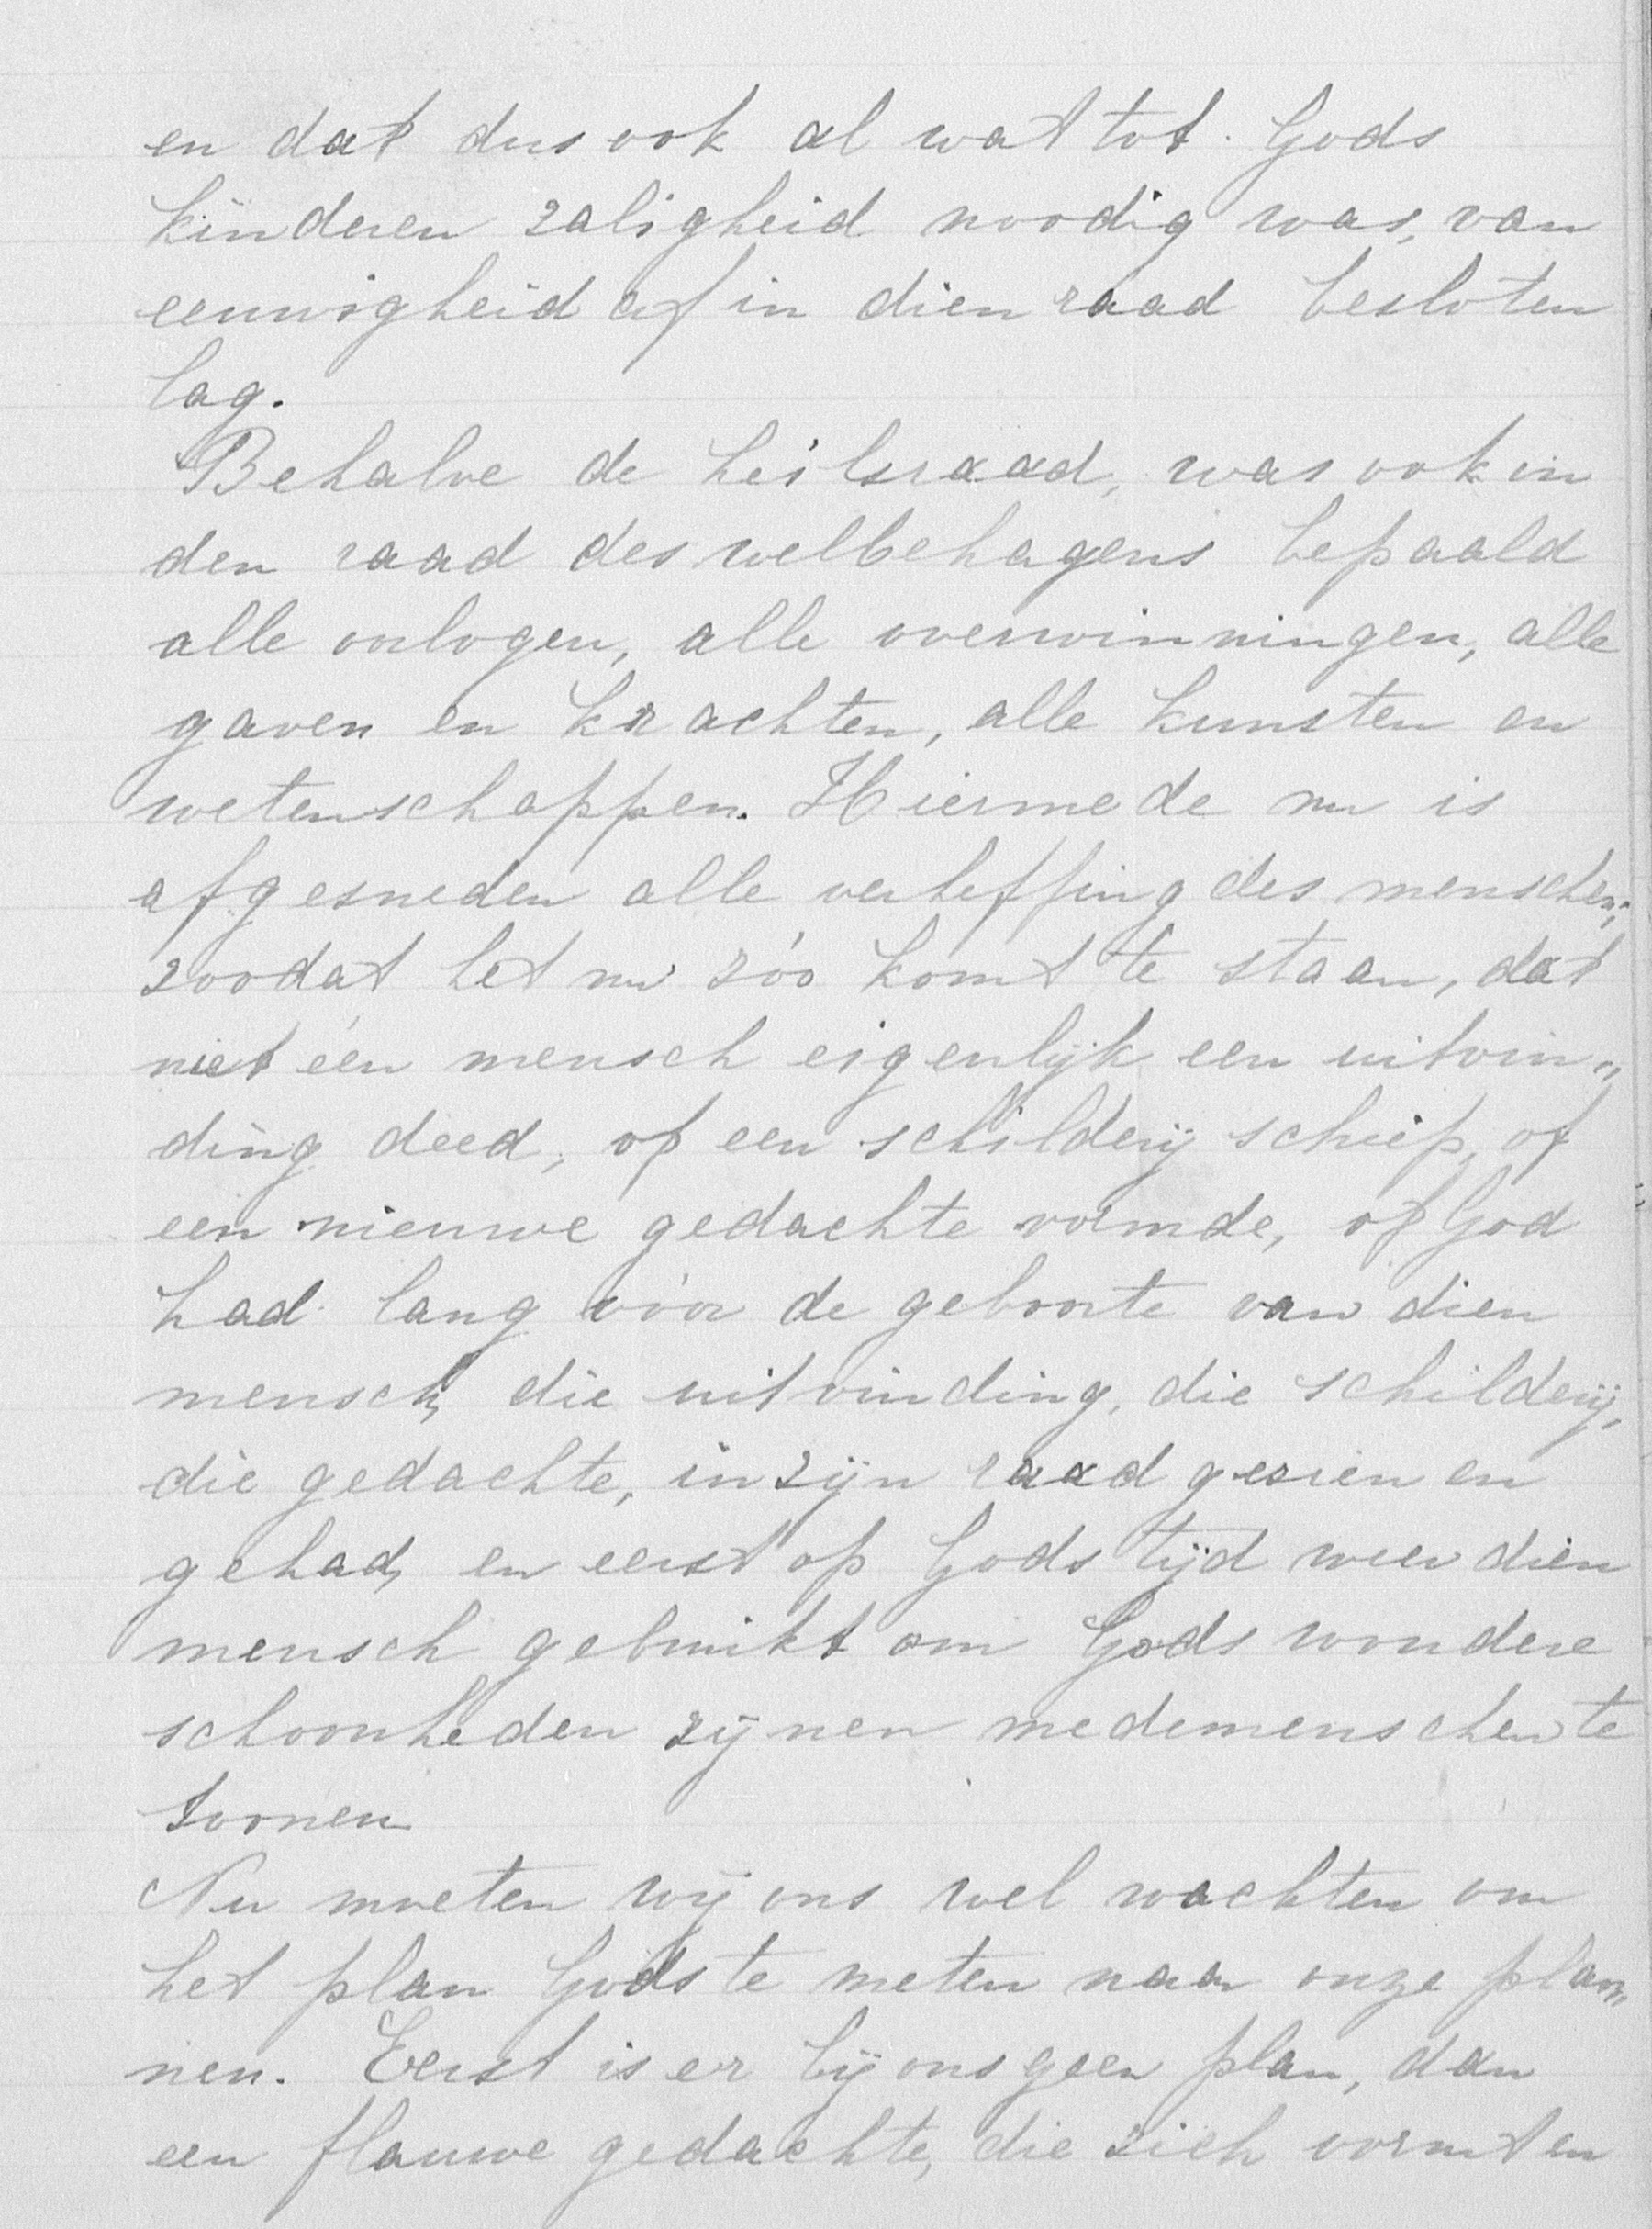 en dat dus ook al wat tot Gods
kinderen zaligheid noodig was, van
eeuwigheid af in dien raad besloten
lag.
Behalve de heilsraad, was ook in
den raad des welbehagens bepaald
alle oorlogen, alle overwinningen, alle
gaven en krachten, alle kunsten en
wetenschappen. Hiermede nu is
afgesneden alle verheffing des menschen;
zoodat het nu zóo komt te staan, dat
niet één mensch eigenlijk een uitvin„
ding deed, of een schilderij schiep, of
een nieuwe gedachte vormde, of God
had lang vóór de geboorte van dien
mensch, die uitvinding, die schilderij,
die gedachte, in zijn raad gezien en
gehad, en eerst op Gods tijd weer dien
mensch gebruikt om Gods wondere
schoonheden zijnen medemenschen te
toonen
Nu moeten wij ons wel wachten om
het plan Gods te meten naar onze plan„
nen. Eerst is er bij ons geen plan, dan
een flauwe gedachte, die zich vormt en